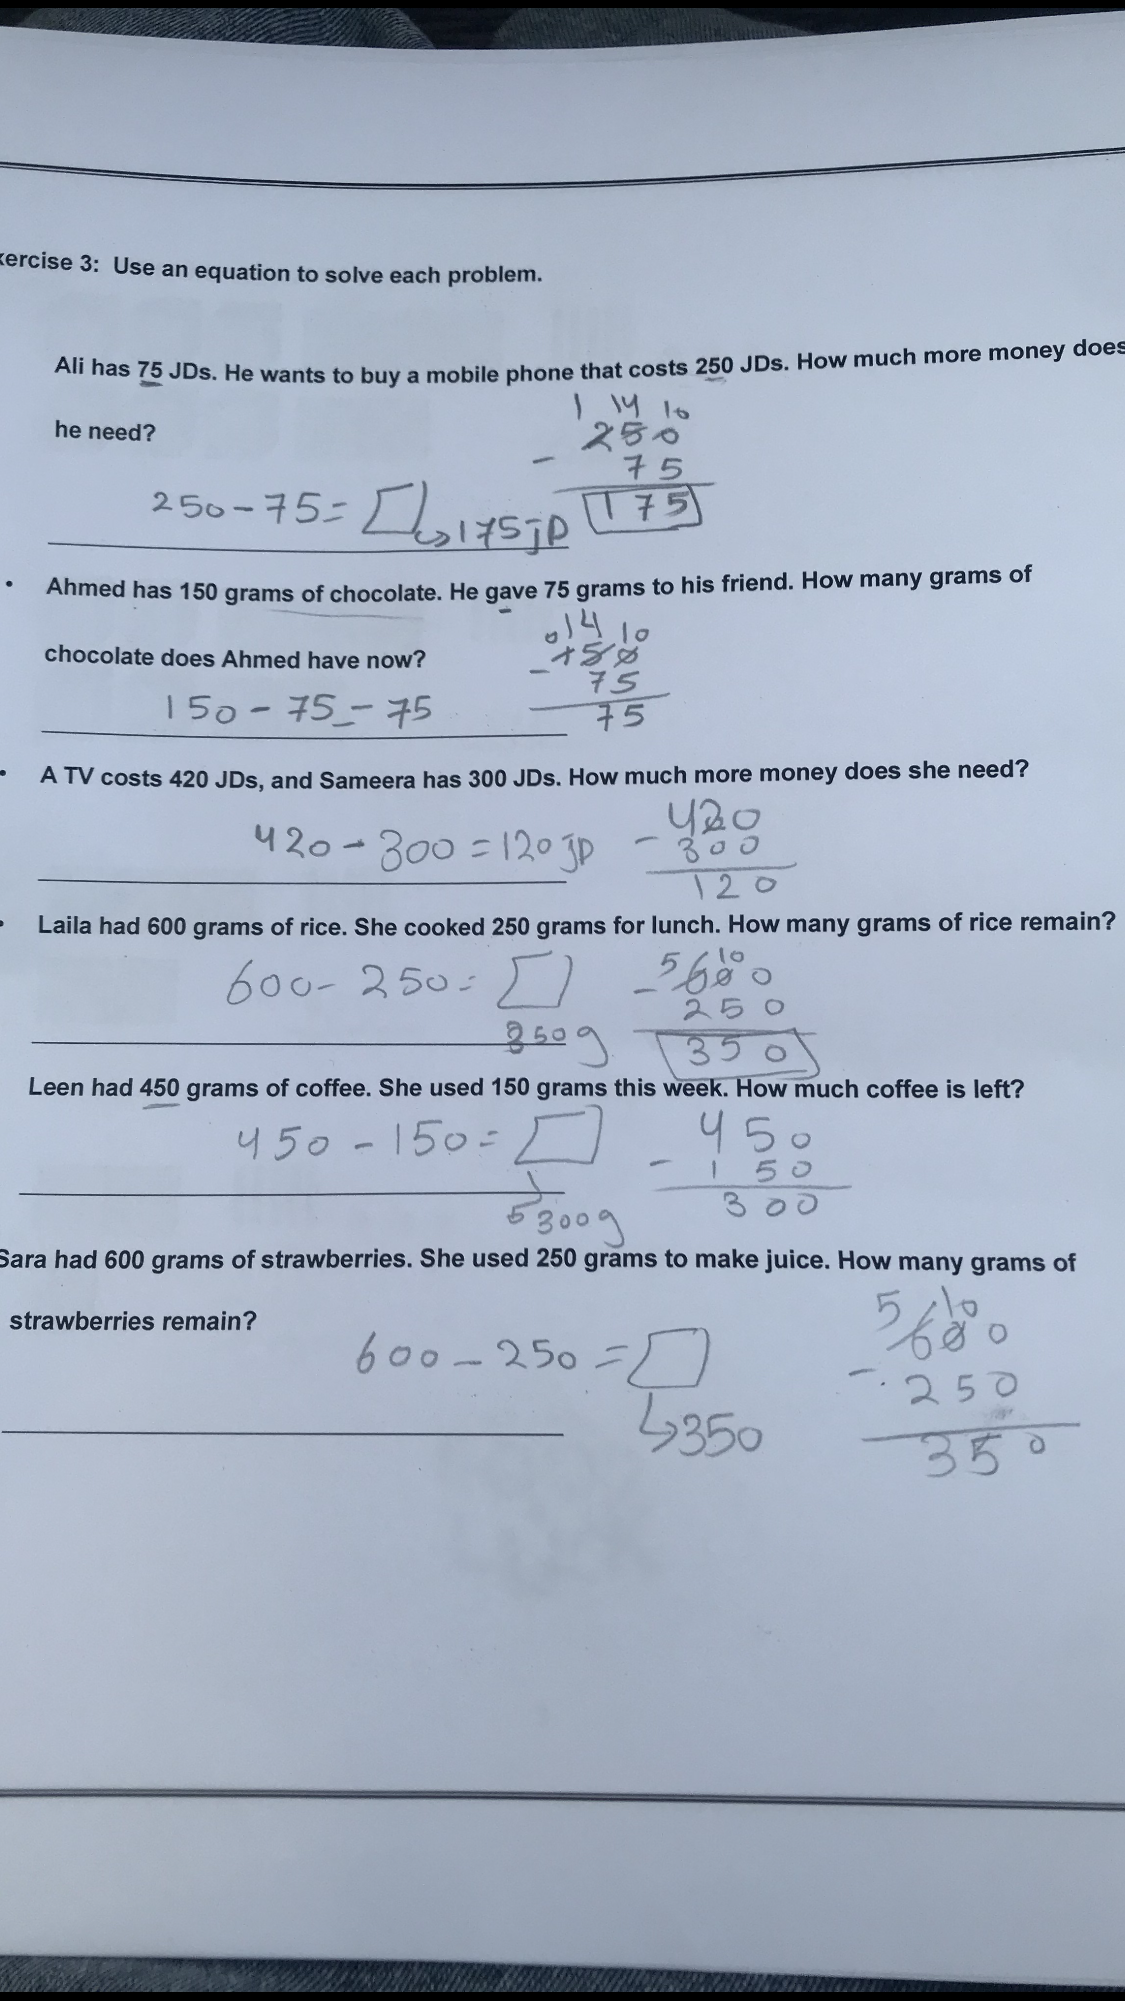 xercise 3: Use an equation to solve each problem.
Ali has 75 JDs. He wants to buy a mobile phone that costs 250 JDs. How much more money does
he need?
1 14 10
250
- 75
175
250 - 75 = □ ↳ 175 jD
• Ahmed has 150 grams of chocolate. He gave 75 grams to his friend. How many grams of
chocolate does Ahmed have now?
0 14 10
150
- 75
75
150 - 75 = 75
• A TV costs 420 JDs, and Sameera has 300 JDs. How much more money does she need?
420 - 300 = 120 jD
420
- 300
120
• Laila had 600 grams of rice. She cooked 250 grams for lunch. How many grams of rice remain?
600 - 250 = □
350g
5 10
600
- 250
350
Leen had 450 grams of coffee. She used 150 grams this week. How much coffee is left?
450 - 150 = □
↳ 300g
450
- 150
300
Sara had 600 grams of strawberries. She used 250 grams to make juice. How many grams of
strawberries remain?
600 - 250 = □
↳ 350
5 10
600
- 250
350